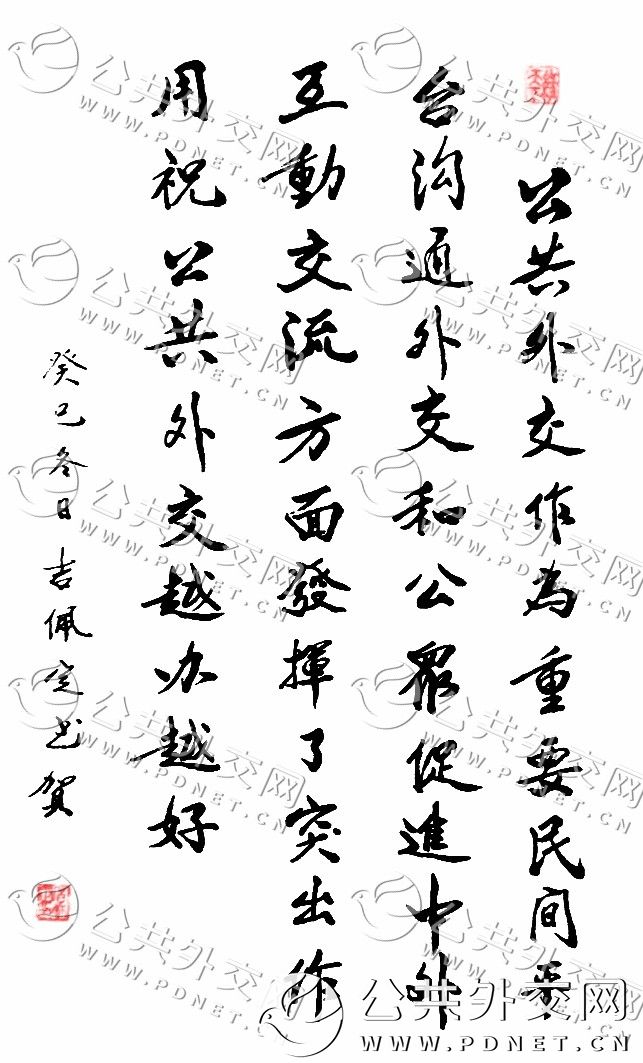 公共外交作为重要民间平
台沟通外交和公眾促進中外
互動交流方面發揮了突出作
用祝公共外交越办越好
癸巳冬日吉佩定书贺
公共外交网
WWW.PDNET.CN